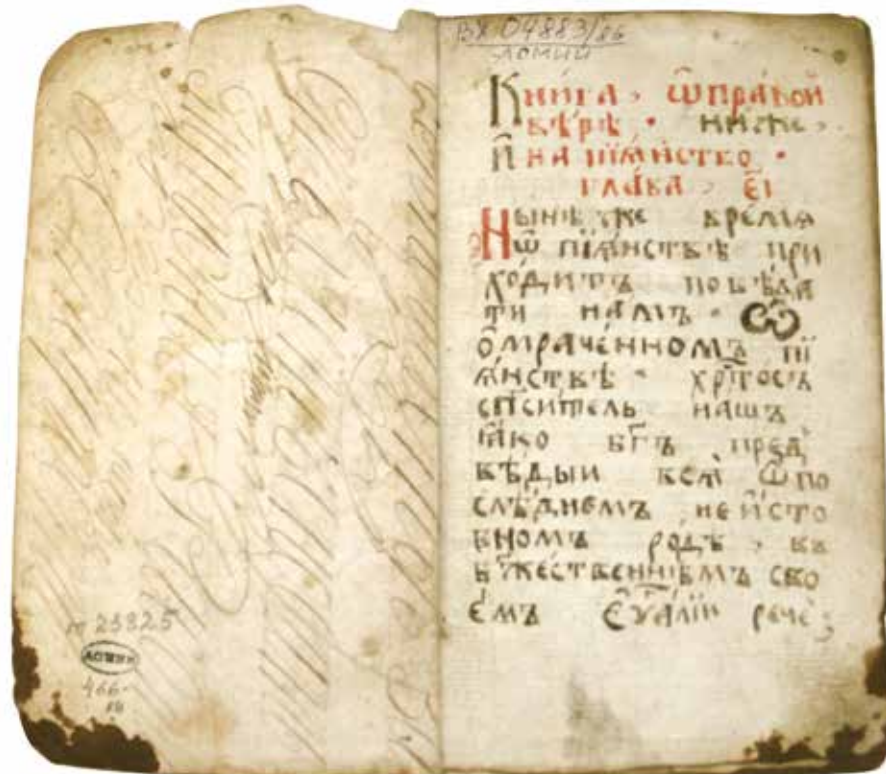 ВХ 04883/86
ЛОМИИ
Кни́га ѿ пра́вой
вѣ́рѣ · ниже ,
и҆ на пїѧ́нство ·
глава̀ , є҃і
Ны́нѣ у҆же времѧ
ѿ пїѧ́нствѣ при
ходитъ повѣда
ти намъ · Ѿ
о҆мраче́нномъ пї
ѧ́нствѣ · хрⷭ҇тосъ
сп҃ситель нашъ
ꙗ҆́ко бг҃ъ пред̾
вѣ́дыи всѧ̀ ѿ по
слѣ́днемъ неи́сто
вномъ родѣ , въ
бж҃ественнѣмъ сво
е҆мъ є҆ѵⷢ҇а́лїи рече҆
№ 23825
466-